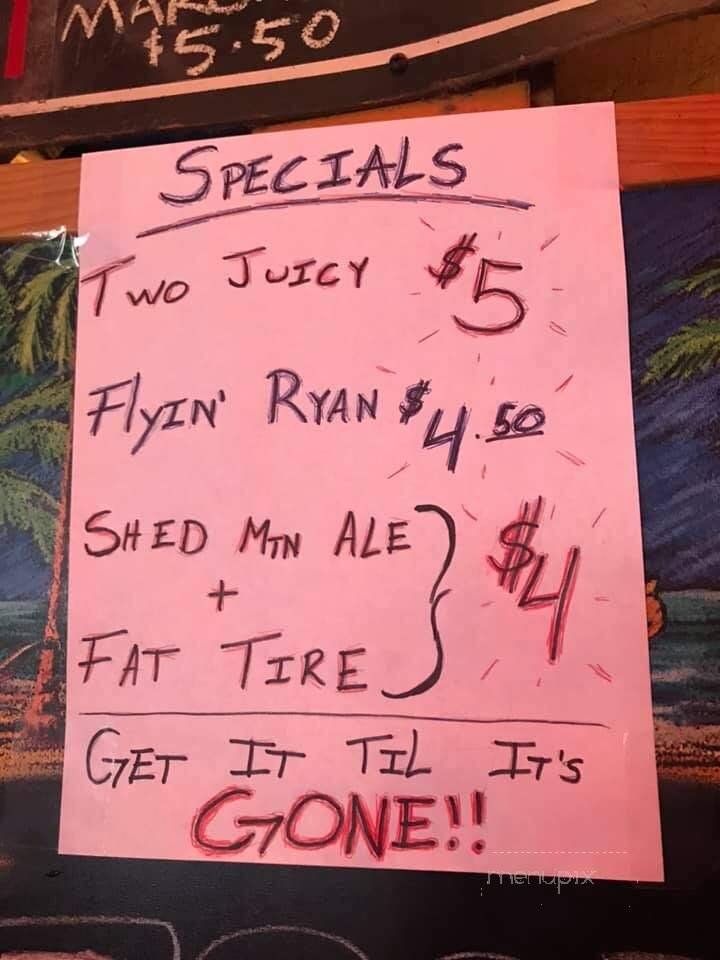 $5.50
SPECIALS
TWO JUICY $5
FlyIN' RYAN $4.50
SHED MTN ALE
+
FAT TIRE
$4
GET IT TIL IT'S
GONE!!
menupix